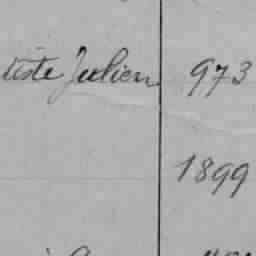 tiste Julien 973
1899